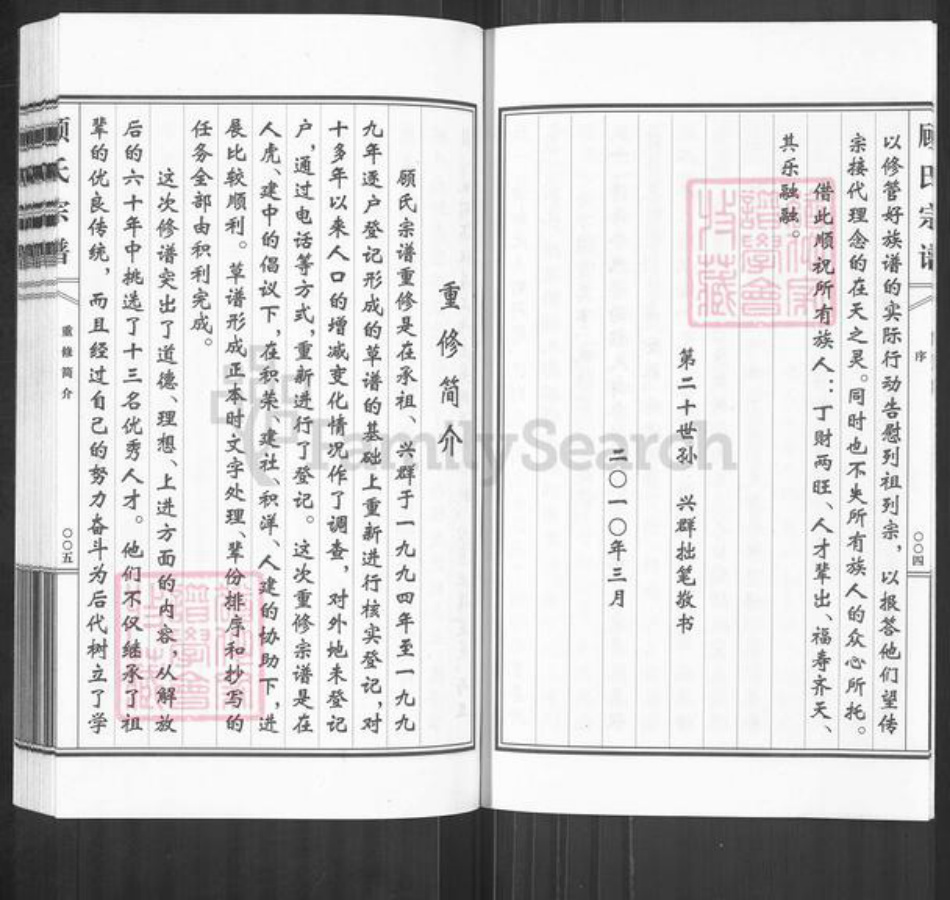 顾氏宗谱
序
〇〇四
以修管好族谱的实际行动告慰列祖列宗，以报答他们望传
宗接代理念的在天之灵。同时也不失所有族人的众心所托。
借此顺祝所有族人：丁财两旺、人才辈出、福寿齐天、
其乐融融。
第二十世孙 兴群拙笔敬书
二〇一〇年三月
重修简介
顾氏宗谱重修是在承祖、兴群于一九九四年至一九九
九年逐户登记形成的草谱的基础上重新进行核实登记，对
十多年以来人口的增减变化情况作了调查，对外地未登记
户，通过电话等方式，重新进行了登记。这次重修宗谱是在
人虎、建中的倡议下，在积荣、建社、积洋、人建的协助下，进
展比较顺利。草谱形成正本时文字处理、辈份排序和抄写的
任务全部由积利完成。
这次修谱突出了道德、理想、上进方面的内容，从解放
后的六十年中挑选了十三名优秀人才。他们不仅继承了祖
辈的优良传统，而且经过自己的努力奋斗为后代树立了学
顾氏宗谱
重修简介
〇〇五
FamilySearch